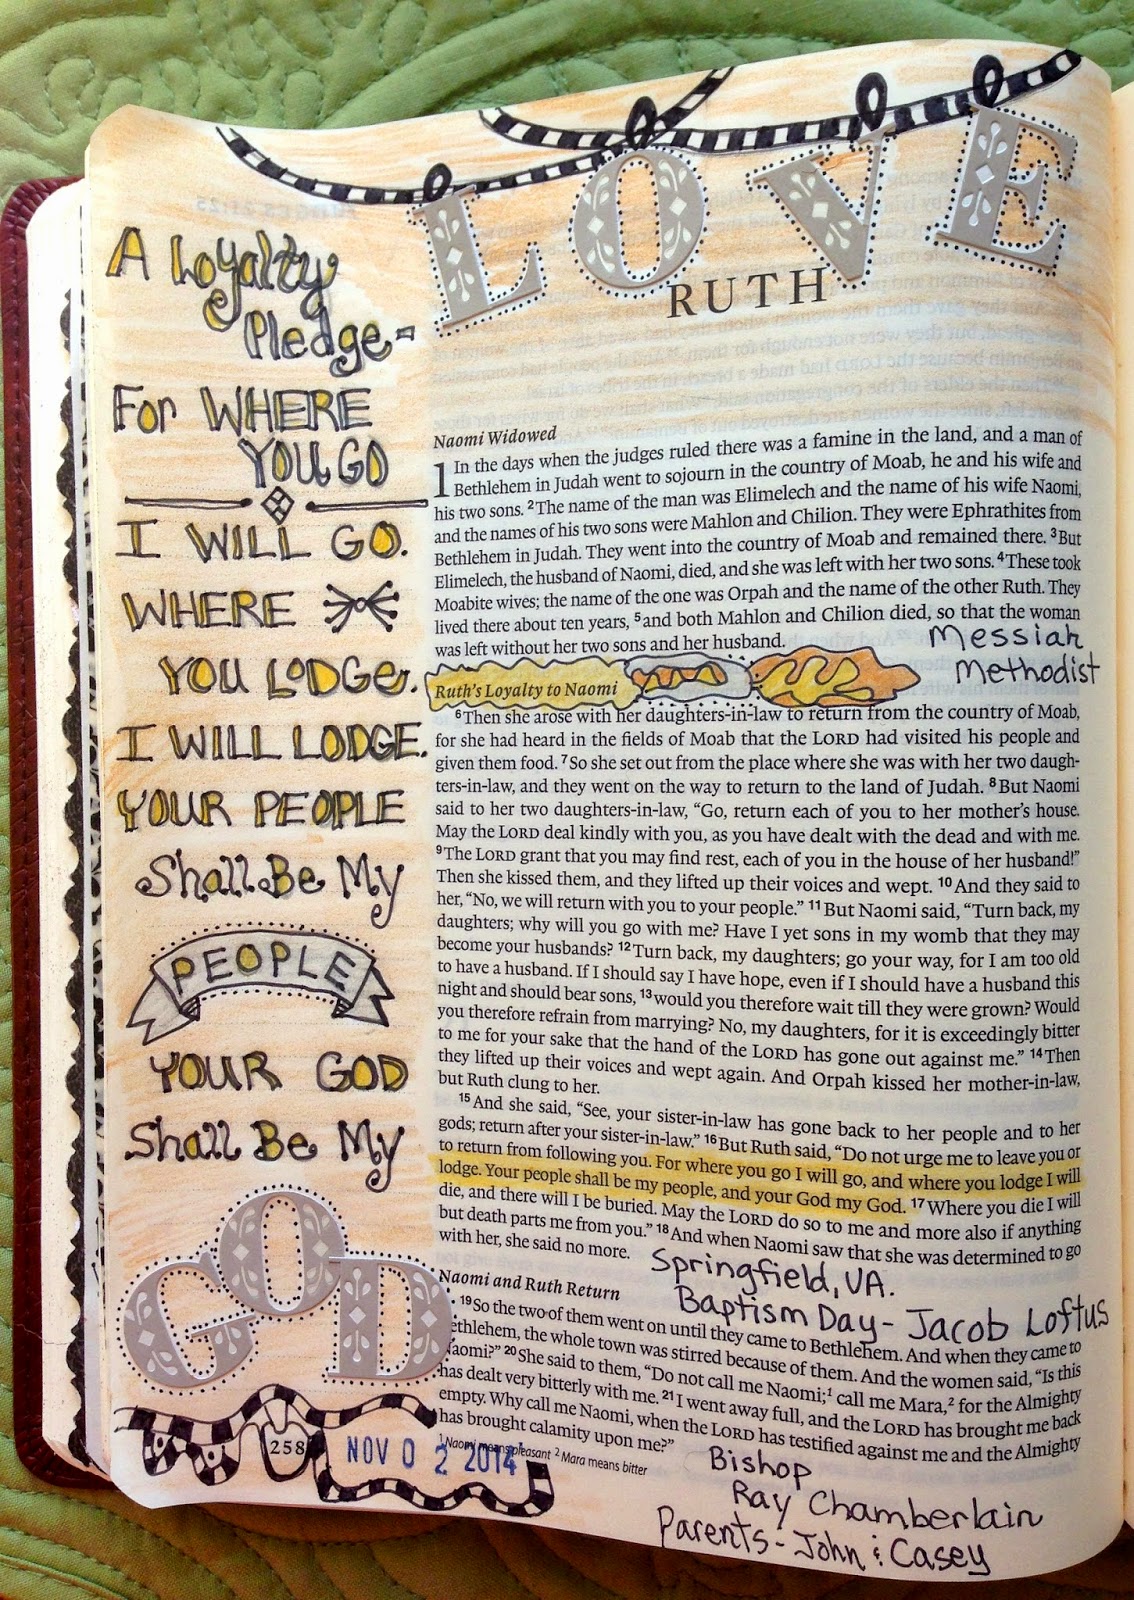 LOVE
RUTH
A Loyalty
Pledge-
For WHERE
YOU GO
I WILL GO.
WHERE
YOU LODGE.
I WILL LODGE.
YOUR PEOPLE
Shall Be My
PEOPLE
YOUR GOD
Shall Be My
GOD
258
NOV 0 2 2014
Naomi Widowed
1 In the days when the judges ruled there was a famine in the land, and a man of
Bethlehem in Judah went to sojourn in the country of Moab, he and his wife and
his two sons. 2The name of the man was Elimelech and the name of his wife Naomi,
and the names of his two sons were Mahlon and Chilion. They were Ephrathites from
Bethlehem in Judah. They went into the country of Moab and remained there. 3But
Elimelech, the husband of Naomi, died, and she was left with her two sons. 4These took
Moabite wives; the name of the one was Orpah and the name of the other Ruth. They
lived there about ten years, 5and both Mahlon and Chilion died, so that the woman
was left without her two sons and her husband.
Messiah
Methodist
Ruth's Loyalty to Naomi
6Then she arose with her daughters-in-law to return from the country of Moab,
for she had heard in the fields of Moab that the LORD had visited his people and
given them food. 7So she set out from the place where she was with her two daugh-
ters-in-law, and they went on the way to return to the land of Judah. 8But Naomi
said to her two daughters-in-law, “Go, return each of you to her mother's house.
May the LORD deal kindly with you, as you have dealt with the dead and with me.
9The LORD grant that you may find rest, each of you in the house of her husband!”
Then she kissed them, and they lifted up their voices and wept. 10And they said to
her, “No, we will return with you to your people.” 11But Naomi said, “Turn back, my
daughters; why will you go with me? Have I yet sons in my womb that they may
become your husbands? 12Turn back, my daughters; go your way, for I am too old
to have a husband. If I should say I have hope, even if I should have a husband this
night and should bear sons, 13would you therefore wait till they were grown? Would
you therefore refrain from marrying? No, my daughters, for it is exceedingly bitter
to me for your sake that the hand of the LORD has gone out against me.” 14Then
they lifted up their voices and wept again. And Orpah kissed her mother-in-law,
but Ruth clung to her.
15And she said, “See, your sister-in-law has gone back to her people and to her
gods; return after your sister-in-law.” 16But Ruth said, “Do not urge me to leave you or
to return from following you. For where you go I will go, and where you lodge I will
lodge. Your people shall be my people, and your God my God. 17Where you die I will
die, and there will I be buried. May the LORD do so to me and more also if anything
but death parts me from you.” 18And when Naomi saw that she was determined to go
with her, she said no more.
Springfield, VA.
Baptism Day- Jacob Loftus
Naomi and Ruth Return
19So the two of them went on until they came to Bethlehem. And when they came to
ethlehem, the whole town was stirred because of them. And the women said, “Is this
aomi?” 20She said to them, “Do not call me Naomi;1 call me Mara,2 for the Almighty
has dealt very bitterly with me. 21I went away full, and the LORD has brought me back
empty. Why call me Naomi, when the LORD has testified against me and the Almighty
has brought calamity upon me?”
1 Naomi means pleasant 2 Mara means bitter
Bishop
Ray Chamberlain
Parents- John & Casey